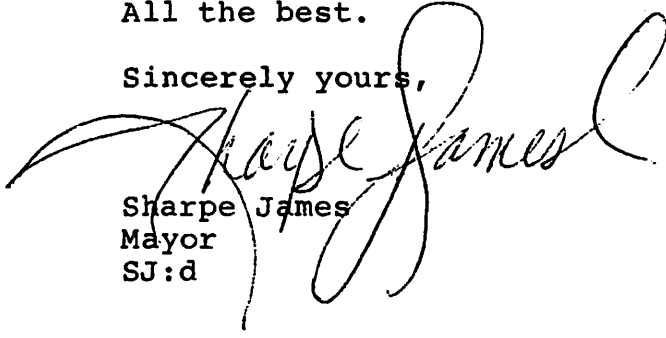 All the best.
Sincerely yours,
Sharpe James
Sharpe James
Mayor
SJ:d